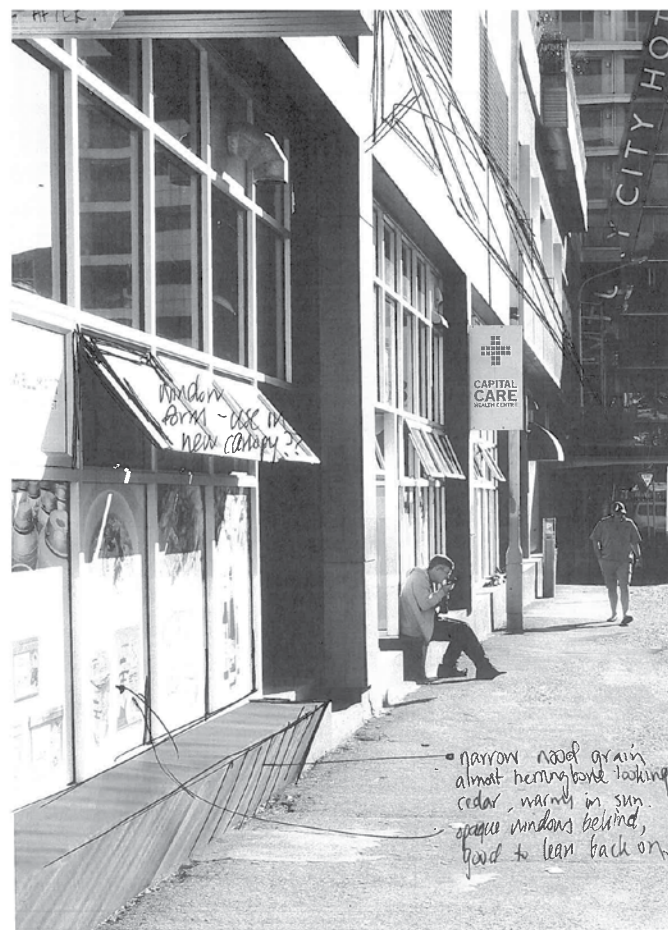 AFTER.
Y CITY HOT
window
form - use in
new canopy??
CAPITAL
CARE
HEALTH CENTRE
narrow wood grain
almost herringbone looking
cedar, warm in sun.
opaque windows behind,
good to lean back on.